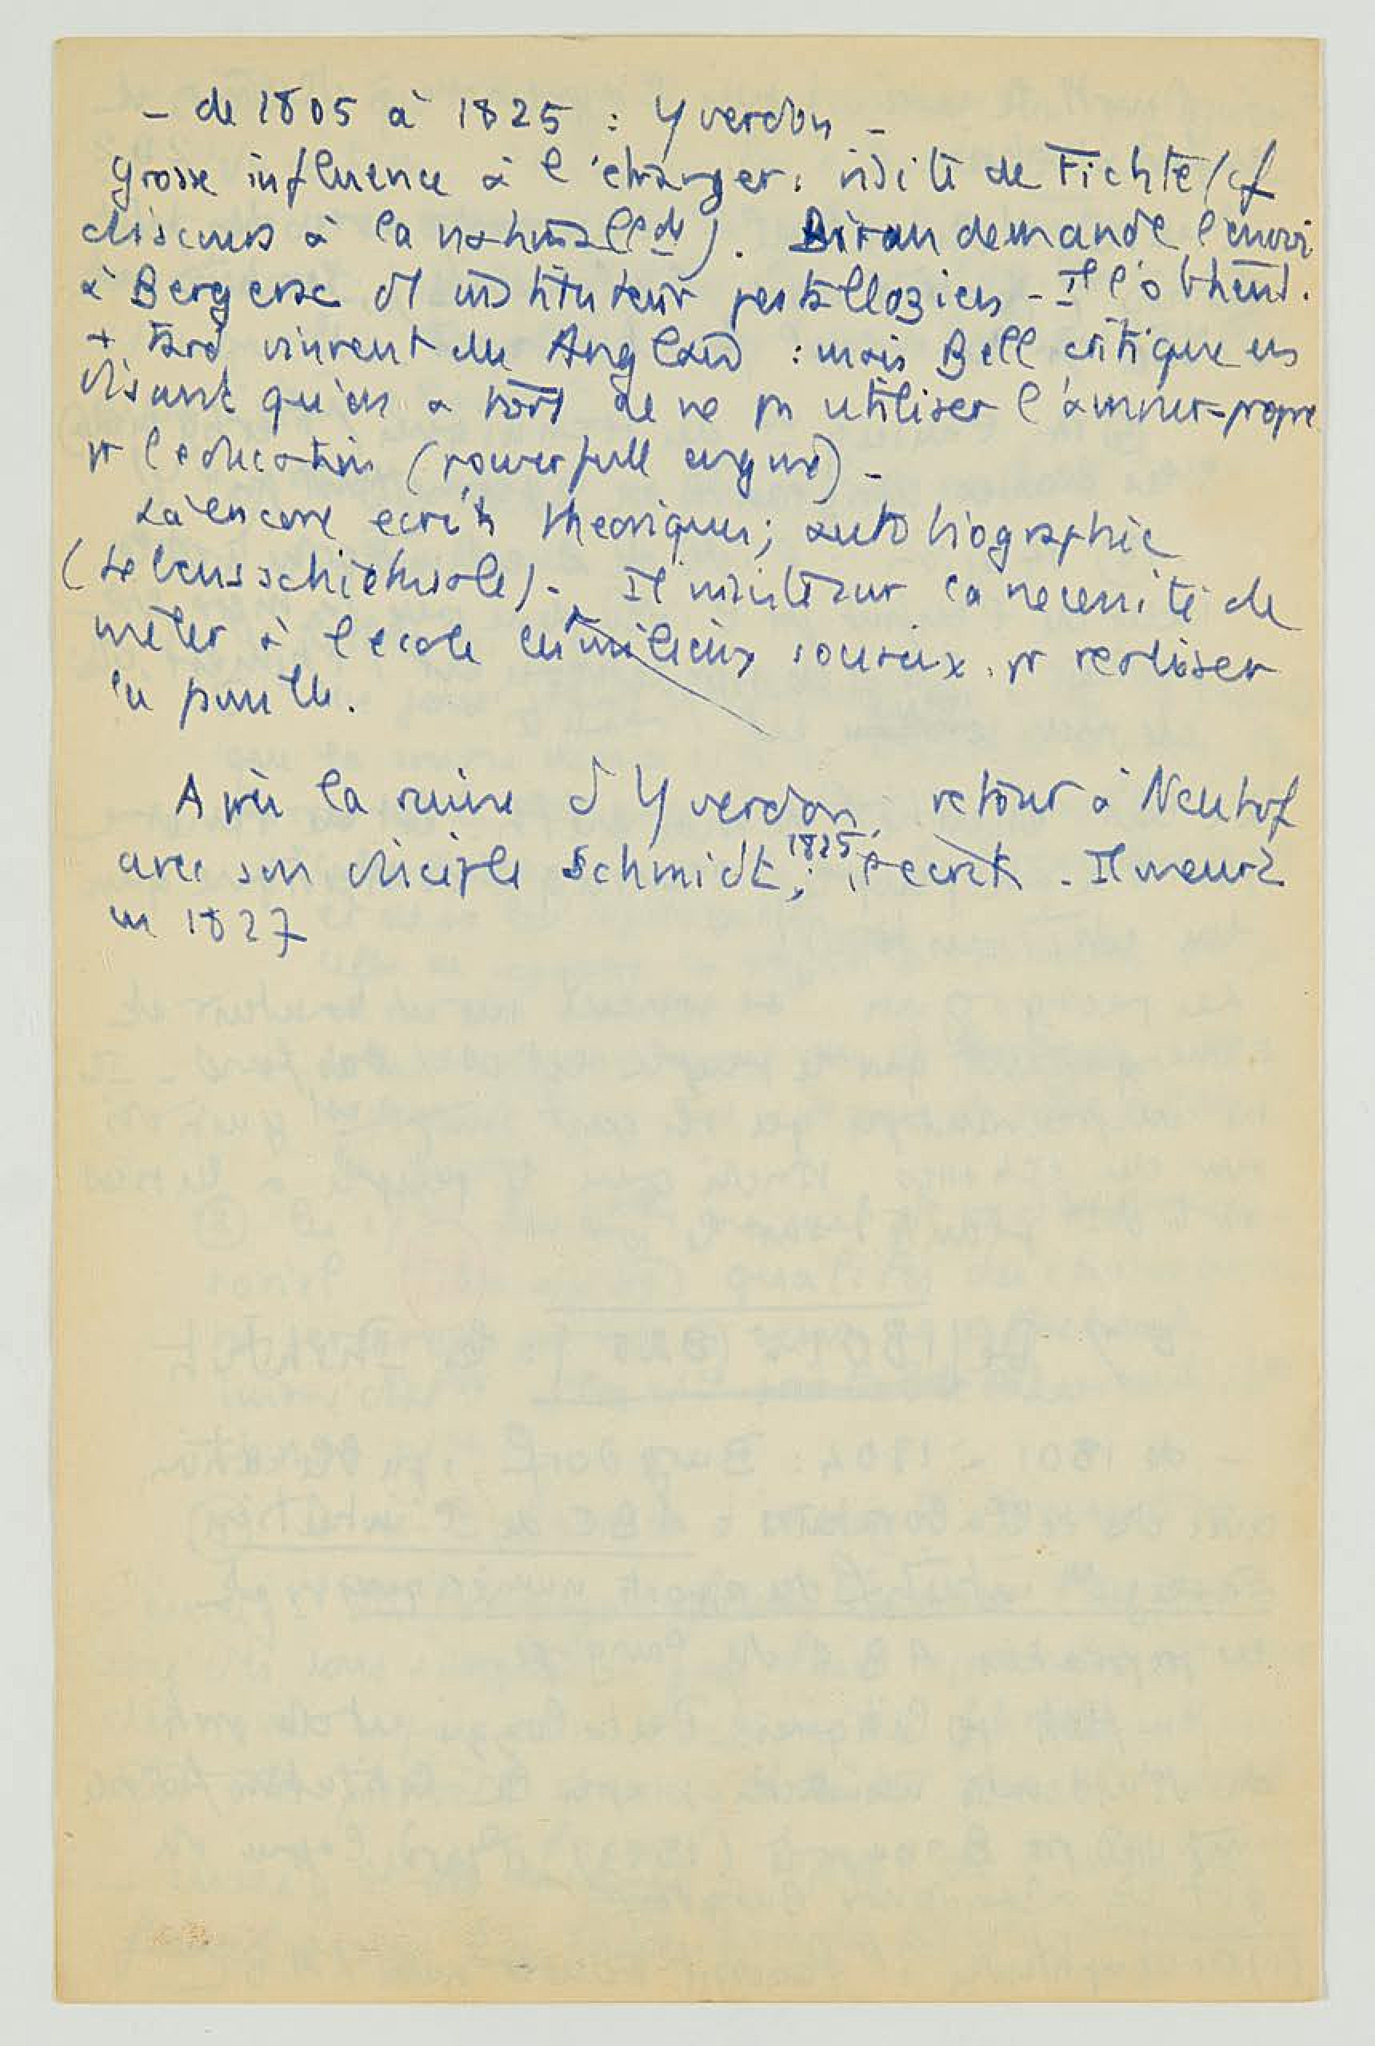 - de 1805 à 1825 : Yverdon -
Grosse influence à l'étranger : visite de Fichte (cf
discours à la nation all de). Biran demande l'envoi
à Bergerac d'1 instituteur pestallozien - Il l'obtient.
+ tard vinrent des Anglais : mais Bell critique en
disant qu'on a tort de ne pas utiliser l'amour-propre
pr l'education (powerfull engine) -
Là encore ecrits theoriques ; autobiographie
(Lebensschicksale). Il insiste sur la necessité de
meler à l'ecole les milieux sociaux. pr realiser
Après la ruine d'Yverdon, retour à Neuhof
avec son disciple Schmidt, 1825 ; . Il meurt
en 1827